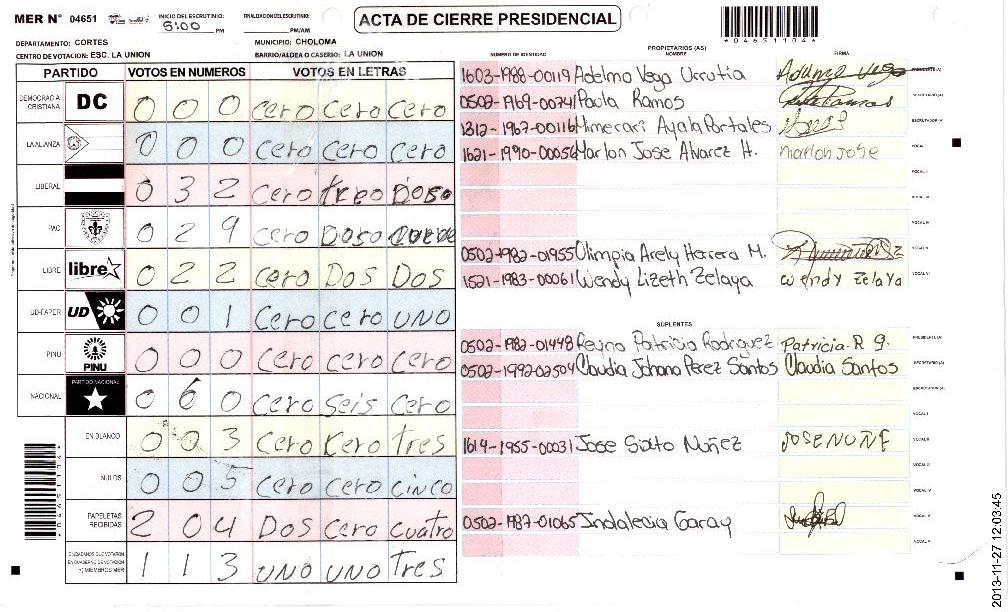 MER N° 04651 INICIO DEL ESCRUTINIO: 5:00 PM FINALIZACION DEL ESCRUTINIO: PM/AM
ACTA DE CIERRE PRESIDENCIAL
*04651104*
DEPARTAMENTO: CORTES MUNICIPIO: CHOLOMA
CENTRO DE VOTACION: ESC. LA UNION BARRIO/ALDEA O CASERIO: LA UNION
PARTIDO VOTOS EN NUMEROS VOTOS EN LETRAS
DEMOCRACIA CRISTIANA DC 0 0 0 cero cero cero
LA ALIANZA 0 0 0 cero cero cero
LIBERAL 0 3 2 cero
PAC 0 2 9 cero
LIBRE libre 0 2 2 cero Dos Dos
UD-FAPER UD 0 0 1 cero cero uno
PINU PINU 0 0 0 cero cero cero
NACIONAL PARTIDO NACIONAL 0 6 0 cero seis cero
EN BLANCO 0 0 3 cero cero tres
NULOS 0 0 5 cero cero cinco
PAPELETAS RECIBIDAS 2 0 4 Dos cero cuatro
CIUDADANOS QUE VOTARON EN CUADERNO DE VOTACION Y MIEMBROS MER 1 1 3 uno uno Tres
PROPIETARIOS (AS)
NUMERO DE IDENTIDAD NOMBRE FIRMA
1603-1988-00119 Adelmo Vega Urrutia PRESIDENTE (A)
0502-1969-00741 Paula Ramos SECRETARIO (A)
1312-1967-00116 Mimerari Ayala Portales ESCRUTADOR (A)
1621-1990-00056 Marlon Jose Alvarez H. marlon jose VOCAL I
VOCAL II
VOCAL III
VOCAL IV
0502-1982-01955 Olimpia Arely Herrera M. VOCAL V
1521-1983-00061 Wendy Lizeth Zelaya wendy zelaya VOCAL VI
SUPLENTES
0502-1982-01448 Reyna Patricia Rodriguez Patricia R g. PRESIDENTE (A)
0502-1992-02504 Claudia Johana Perez Santos Claudia Santos SECRETARIO (A)
ESCRUTADOR (A)
VOCAL I
1614-1955-00031 Jose Sixto Nuñez JOSE NUÑE VOCAL II
VOCAL III
VOCAL IV
0502-1987-01065 Indalecia Garay VOCAL V
VOCAL VI
*04651104*
2013-11-27 12:03:45